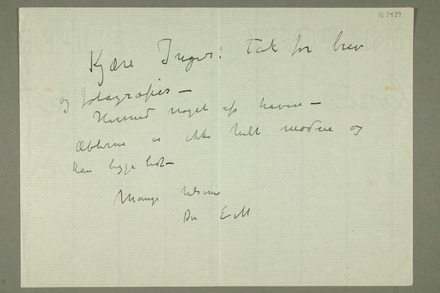 N 1489
Kjære Inger! Tak for brev
og fotografier —
Hermed noget af haven —
Æblerne er ikke helt modne og
kan ligge lidt —
Mange hilsener
Din E M